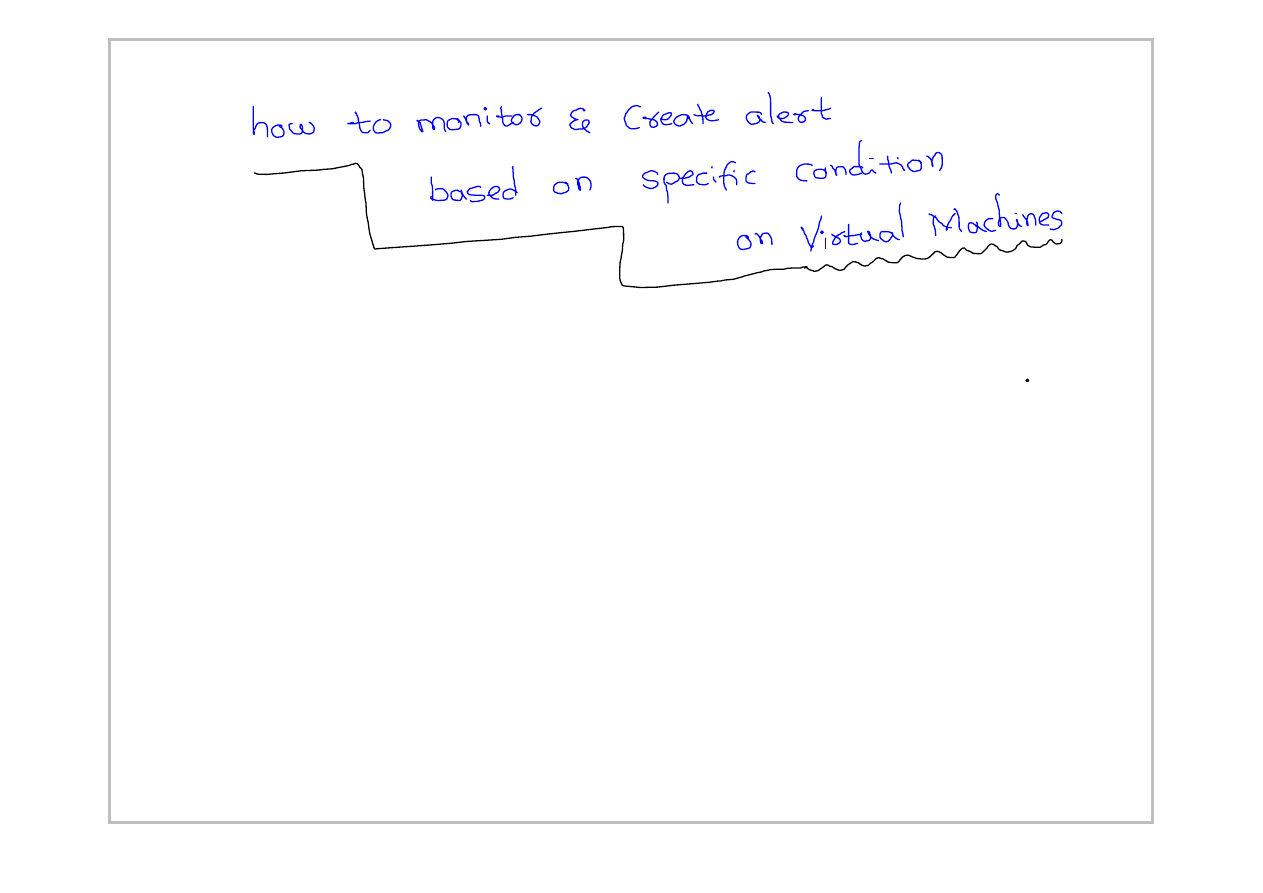 how to monitor & Create alert
based on specific condition
on Virtual Machines